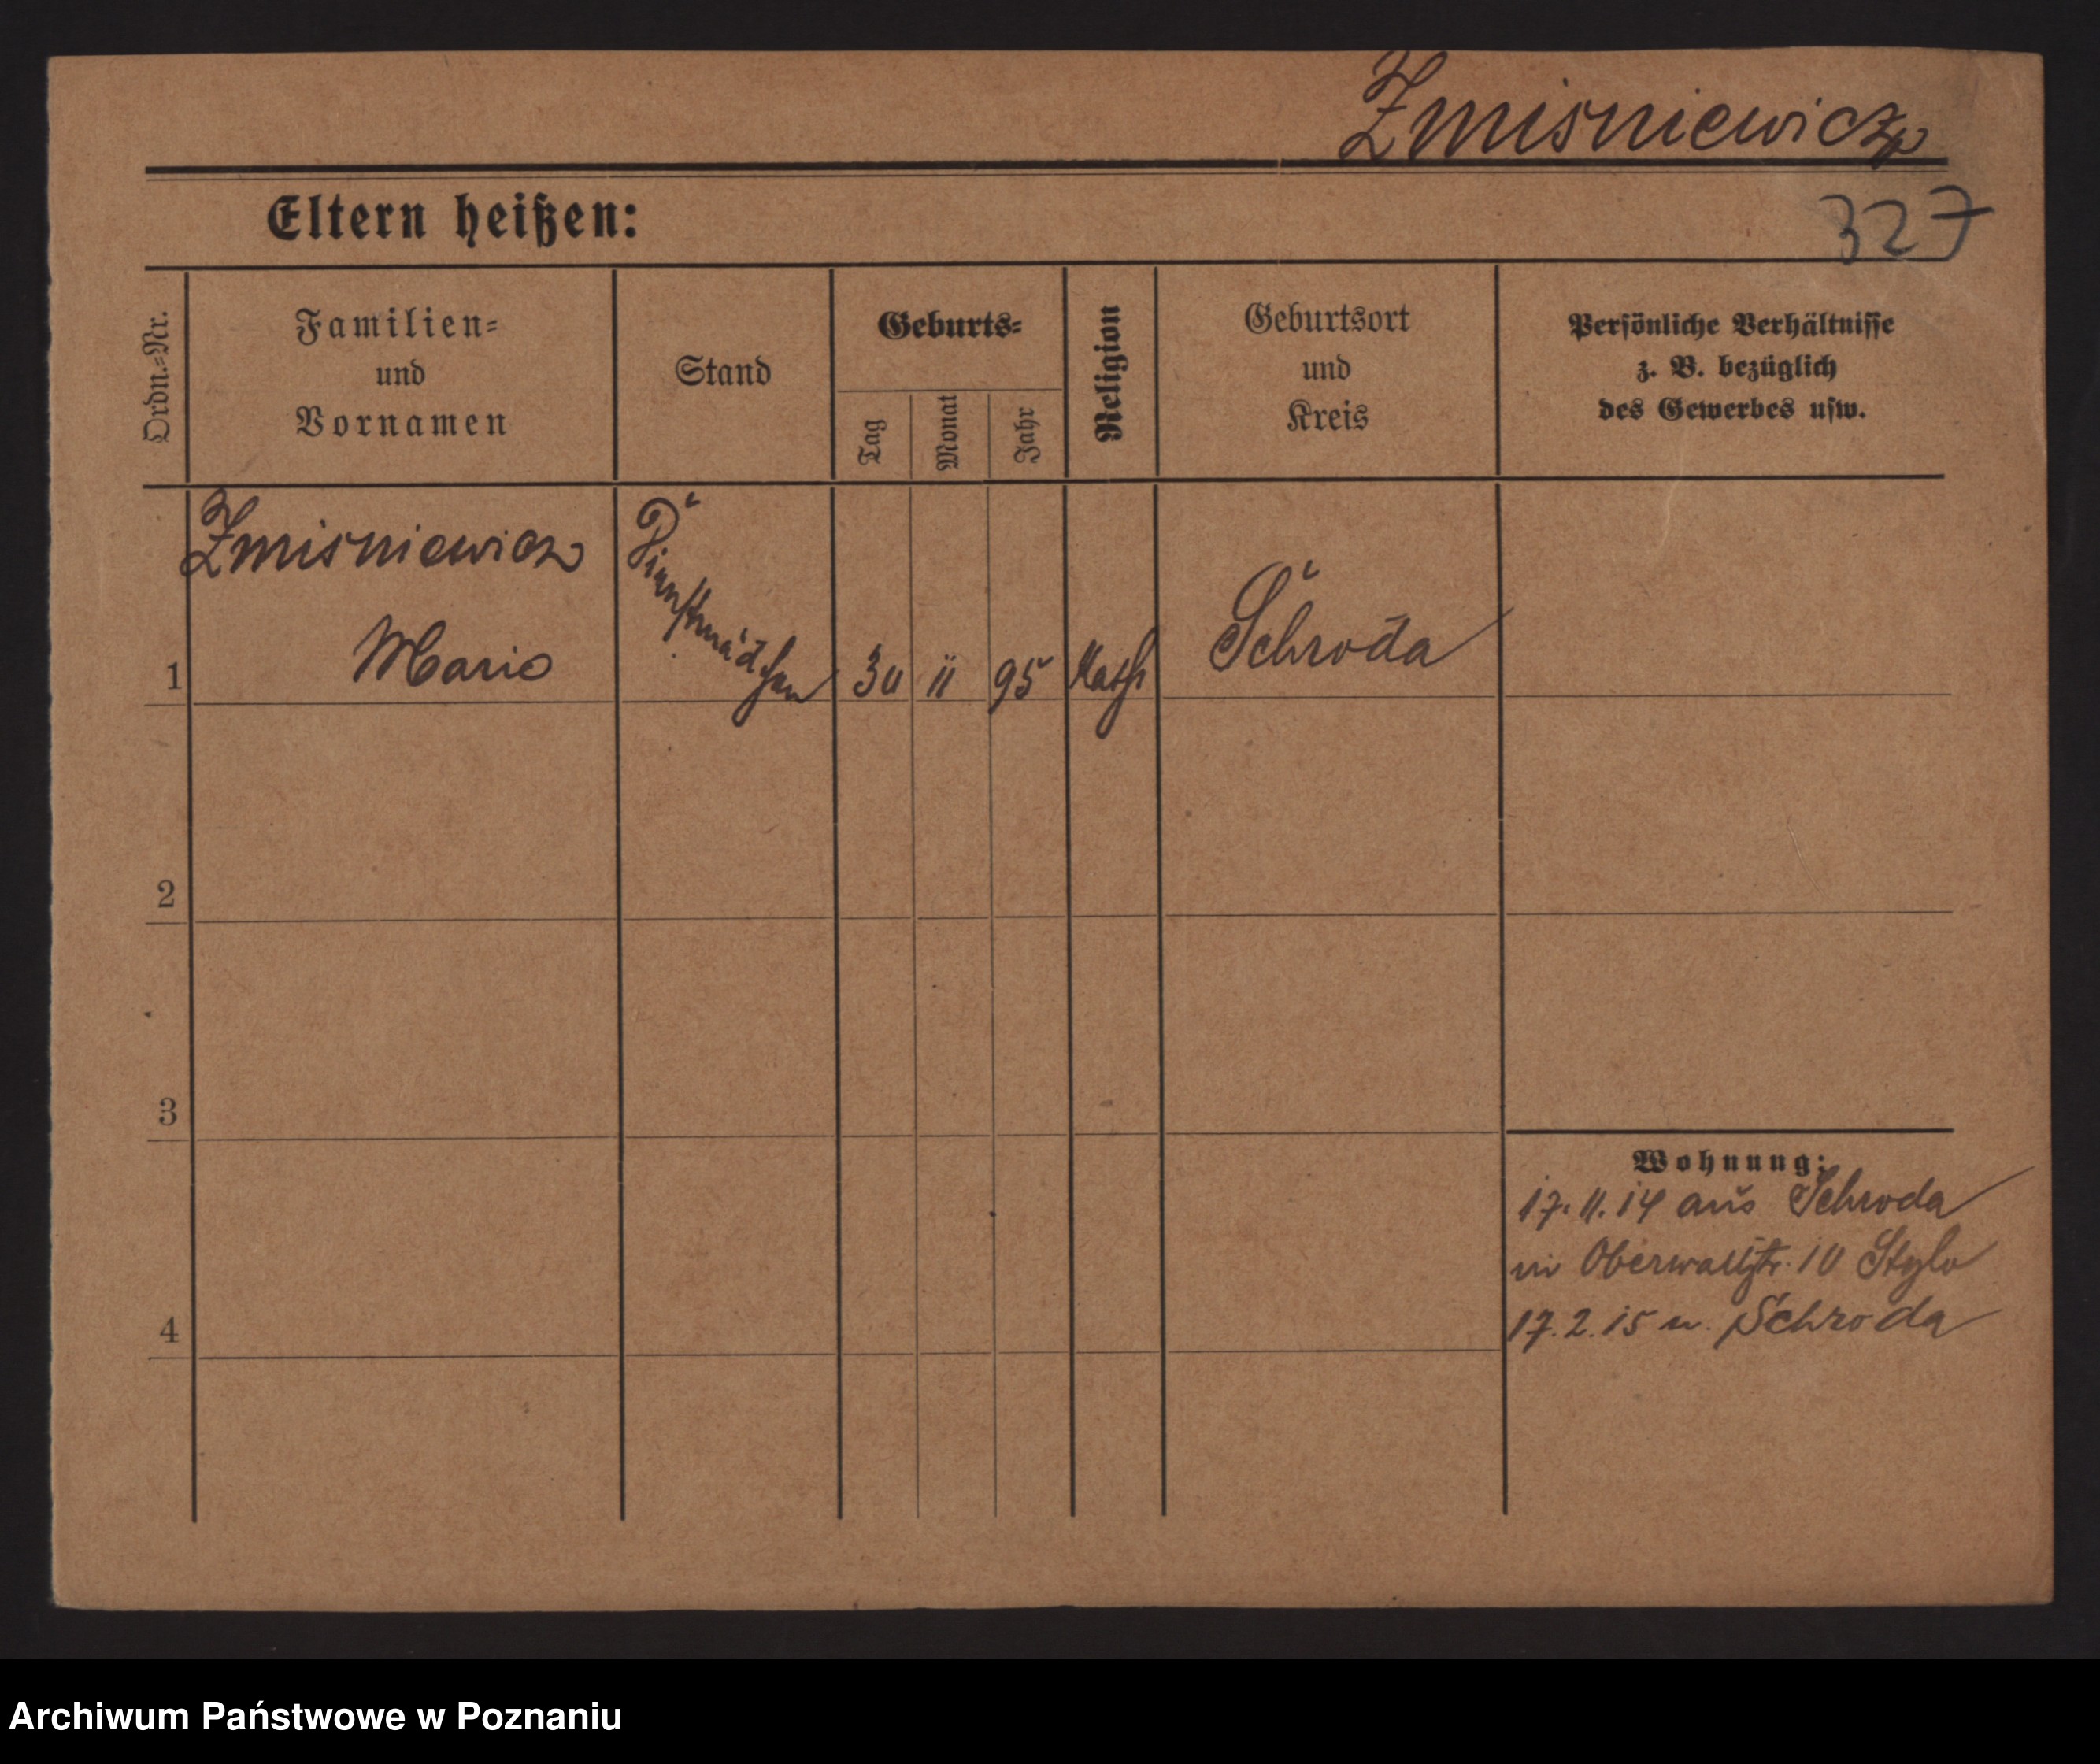 Zmisniewicz
Eltern heißen:
327
Ordn.=Nr.
Familien=
und
Vornamen
Stand
Geburts=
Tag
Monat
Jahr
Religion
Geburtsort
und
Kreis
Persönliche Verhältnisse
z. B. bezüglich
des Gewerbes usw.
Zmisniewicz
Marie
Dienstmädchen
1
30
11
95
Kath
Schroda
2
3
Wohnung:
17.11.14 aus Schroda
in Oberwallstr. 10 Stylo
17.2.15 n. Schroda
4
Archiwum Państwowe w Poznaniu